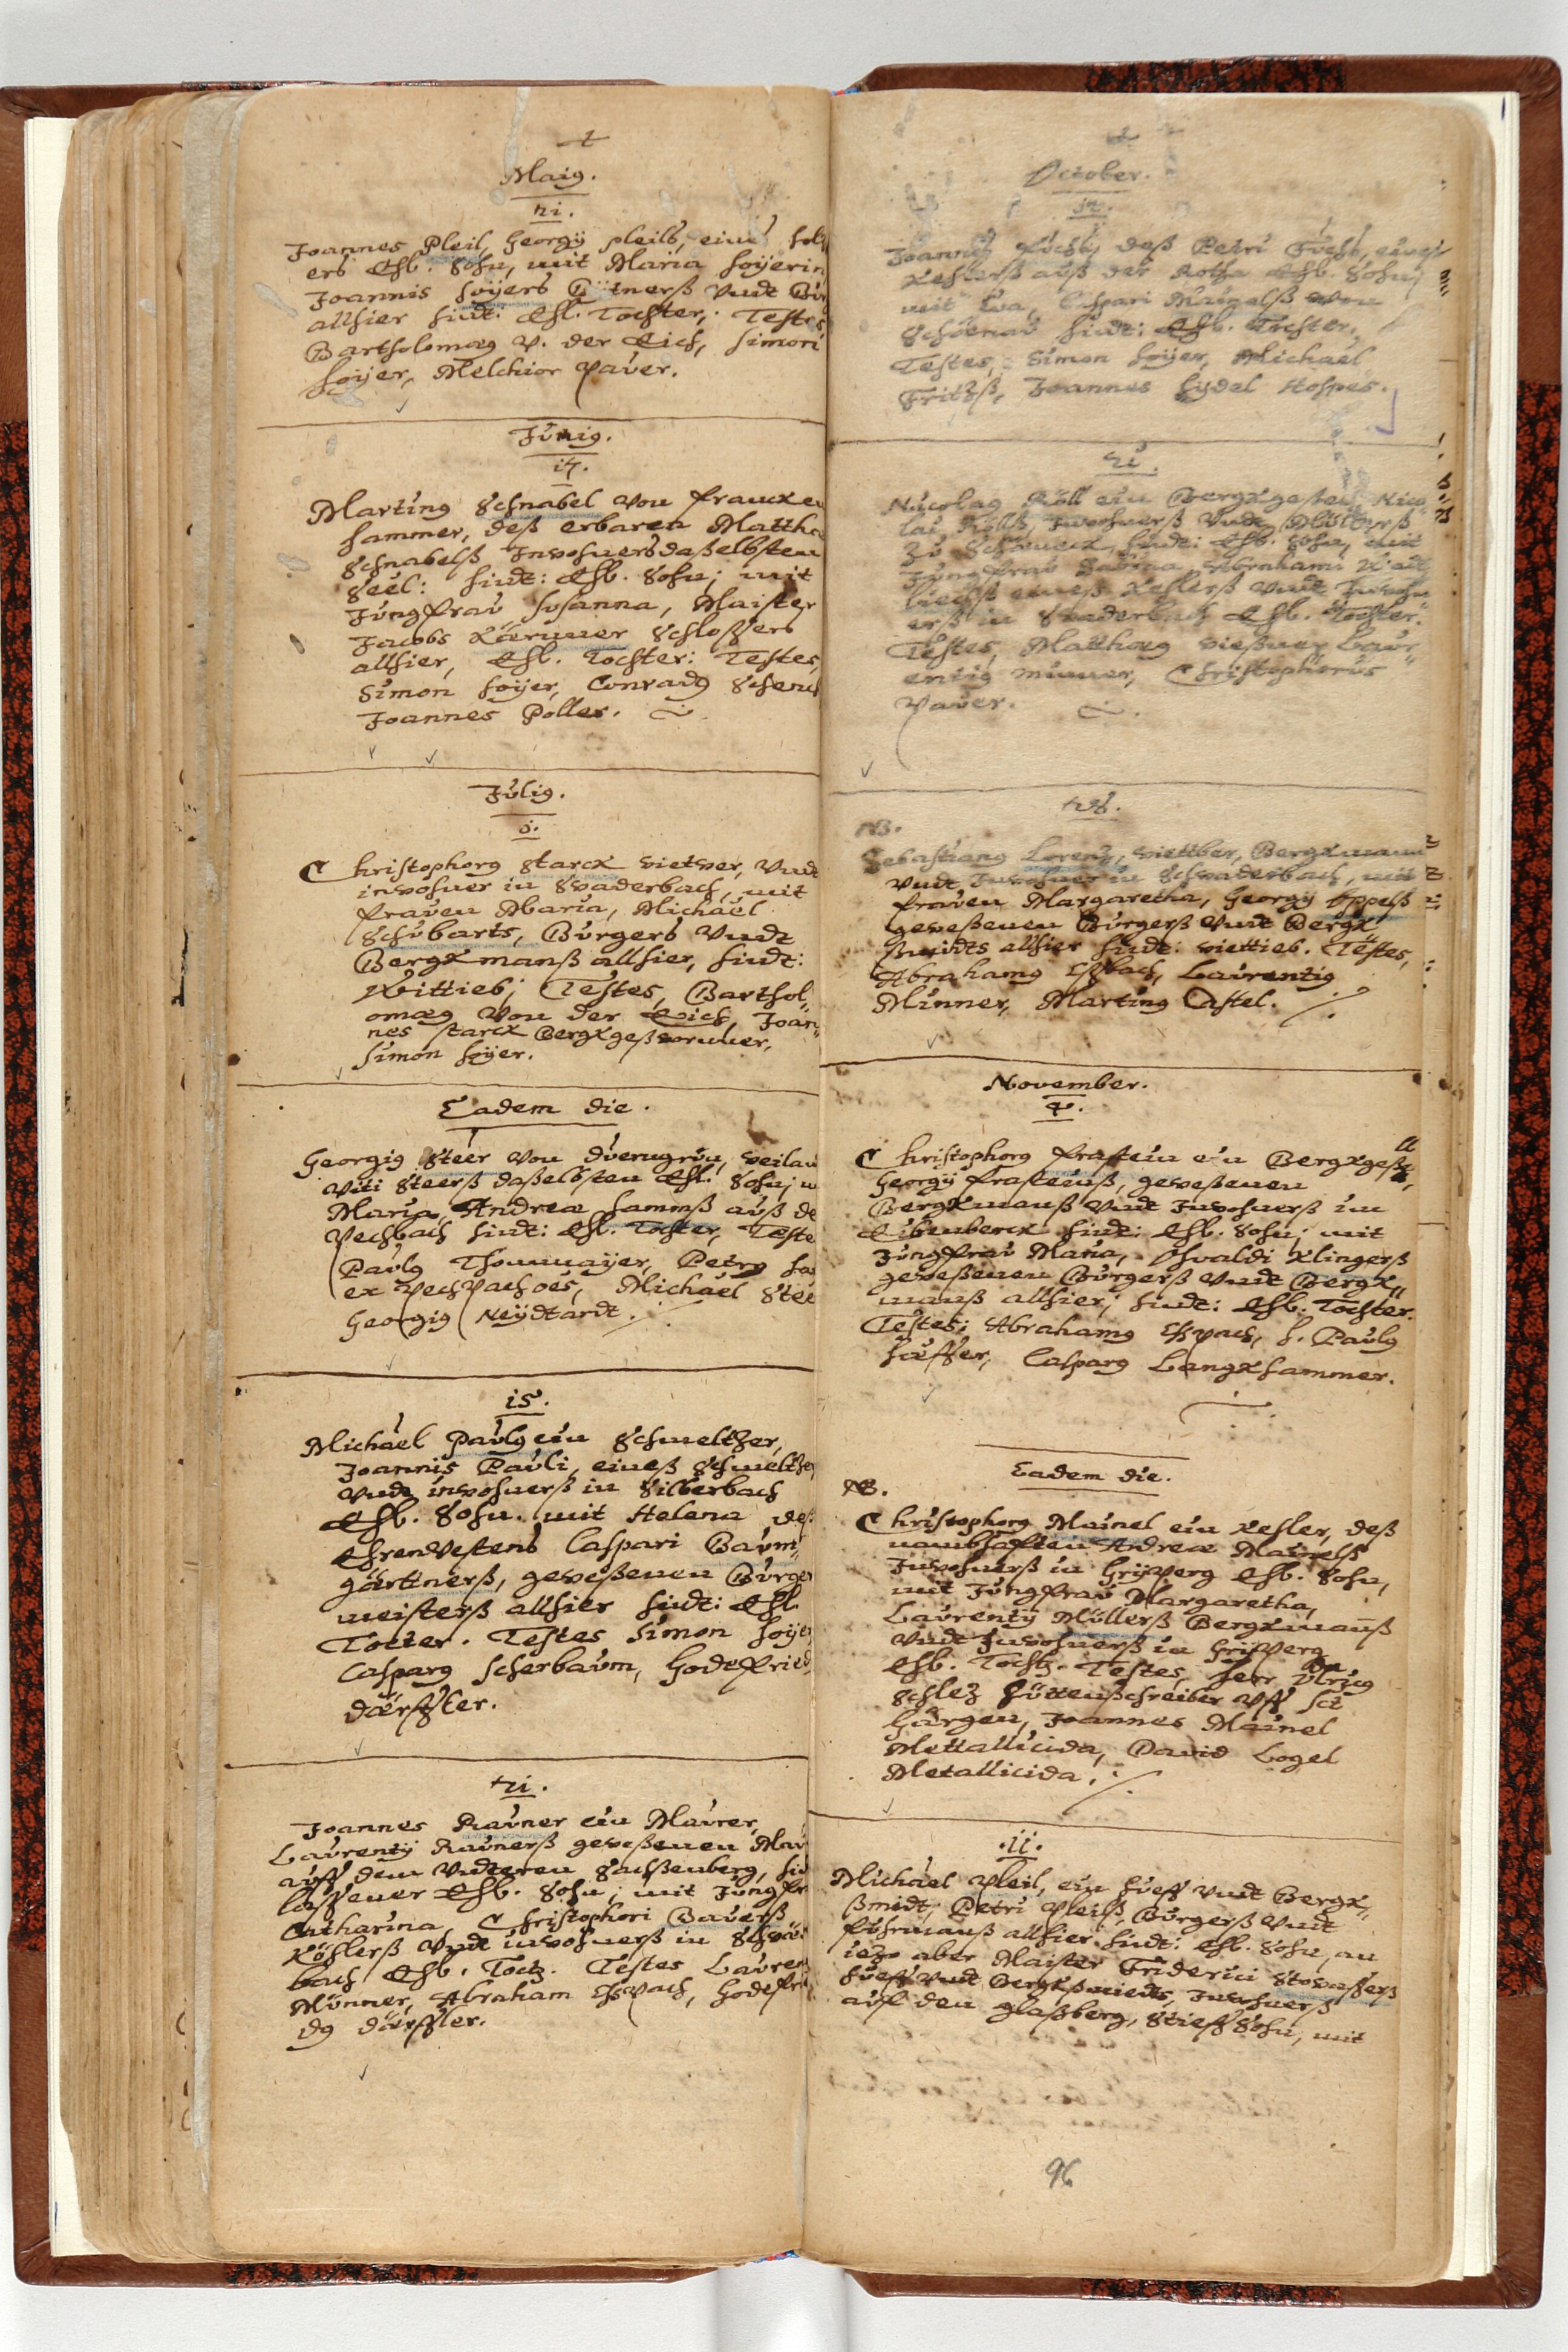 Maig.
21.
Joannes Pleil, Georgÿ pleils, eins
ers Ehl. Sohn, mit Maria Hoÿerin
Joannis Hoÿers Bütners Vndt Bür
allhier hindt: Ehl. Tochter,: Testes
Bartholomæg V. der Eich, Simon
Hoÿer, Melchior Paver.
Junig.
17.
Marting Schnabel von francken
hammer, deß erbaren Matthæ
Schnabelß Inwohners daselbsten
Seel: hindt: Ehl. Sohn; mit
Jungfrav Susanna, Maister
Jacobs Kärmer Schloßers
allhier, Ehl. Tochter: Testes,
Simon Hoÿer, Conradg Schenck
Joannes Poller.
Julig.
5.
Christophorg Starck Wietwer, Vndt
inwohner in Swaderbach, mit
fraven Maria, Michaël
Schubarts, Burgers Vndt
Bergkmanß allhier, hindt:
Wittieb; Testes, Barthol„
omæg Von der Eich, Joan„
nes Starck Bergkgeßworner,
Simon Hoÿer.
Eadem die.
Georgig Steer von Dürngrün, Weilan
Viti Steerß daßelbsten Ehl. Sohn; m
Maria Andreæ Hammß auß de
Pechbach hindt: Ehl. Tochter, Teste
Paulg Thommaÿer, Petrg
ex Pechpach oes, Michaël Stee
Georgig Neÿdtardt.
15.
Michael Paulg ein Schmeltzer,
Joannis Pauli, eineß Schmeltzer
Vndt inwohnerß in Silberbach
Ehl. Sohn. mit Helena deß
Ehrenvestens Caspari Baum„
gärtnerß, geweßenen Burger
meisterß allhier hindt: Ehl.
Tocter. Testes Simon Hoÿer
Casparg Scherbaum, Godefried
Dörffler.
21.
Joannes Ravner ein Mavrer,
Laurentÿ Ravnerß geweßenen Mav
auff dem Vndteren Sachßenberg, hin
laßener Ehl. Sohn; mit Jungfr
Catharina, Christophori Baverß
Köhlerß Vndt inwohnerß in Schwa
bach Ehl. Tocht. Testes Lauren
Münner, Abraham Eßpach, Godefri
dg Dörffler.
October.
Joannes Fuchs, deß Petri Fuchs, eineß
Keßlerß auß der Rotha Ehl. Sohn,
mit Eva, Caspari Mainelß von
Schönav hindt: Ehl. Tochter.
Testes, Simon Hoÿer, Michaël
Fritzß, Joannes Hÿdel Hospes.
21.
Nicolag Köll ein Bergkgesell, Nico
lai Kölß, Inwohnerß Vndt Müllerß
Zu Schöneck, hindt: Ehl. Sohn, mit
Jungfrav Sabina, Abrahami
eineß Keßlerß Vndt Inwohn
erß in Swaderbach Ehl. Tochter.
Testes, Matthæg Wießner Laur„
entig Münner, Christophorus
Paver.
28.
NB.
Sebastiang Lorenz, Wiettber, Bergkmann
Vndt Inwohner in Schwaderbach, mit
fraven Margaretha, Georgÿ Eppelß
geweßenen Burgerß Vndt Bergk
ßmidts allhier hindt: Wiettieb. Testes,
Abrahamg Eßbach, Laurentig
Münner, Marting Castel.
November.
4.
Christophorg Frastein ein Bergkgeßell
Georgÿ Frasteinß, geweßenen
Bergkmanß Vndt Inwohnerß im
Eibenberck hindt: Ehl. Sohn; mit
Jungfrav Maria, Oswaldi Klingerß
geweßenen Burgerß Vndt Bergk„
manß allhier, hindt: Ehl. Tochter.
Testes; Abrahamg Eßpach, H. Paulg
Häffer, Casparg Langkhammer.
Eadem die.
NB.
Christophorg Mainel ein Keßler, deß
namhafften Andreæ Mainelß
Inwohnerß in Grÿpperg Ehl. Sohn,
mit Jungfrav Margaretha,
Laurentÿ Müllerß Bergkmanß
Vndt Inwohnerß in Gripperg
Ehl. Tocht. Testes Herr Vlricg
Schlez Hüttenschreiber Vff Sct
Görgen, Joannes Mainel
Mettallicida, David Logel
Metallicida.
11.
Michael Pleil, ein Hueff Vndt Bergk„
ßmidt, Petri Pleilß, Burgerß Vndt
fuhrmanß allhier hindt: Ehl. Sohn, an
iezo aber Maister Friderici Stowaßerß
Hueff Vndt Bergkßmiedts, Inwohnerß
auf den glaßberg, Stieff Sohn, mit
96